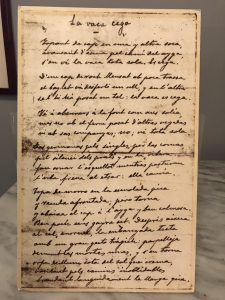 La vaca cega
Topant de cap en una y altra soca,
avansant d'esma pel camí de l'aygua
s'en vé la vaca tota sola. Es cega.
D'un cop de roch llensat ab
el baylet va desferli un ull, y en l'altre
se li ha posat un tel: la vaca es cega.
Ve á abeurarse á la font com ans solia
mes no ab el ferm posat d'altres vegades
ni ab ses companyes, no; ve tota sola
Ses companyes pels cingles, per les comes
pel silenci dels prats y en la ribera
fan dringar l'esquellot mentres pasturen
l'erba fresca al atzar... ella cauria.
Topa de morro en la esmolada pica
y recula afrontada, pero torna
y abaixa el cap á l'aygua y beu calmosa.
Beu poch sens gayre set. Després aixeca
al cel, enorme, la embanyada testa
ab un gran gesto trágich; parpelleja
demunt les mortes nines, y s'en torna
orfe de llum sota del sol que crema,
vacilant pels camins inoblidables,
brandant llánguidament la llarga cua.